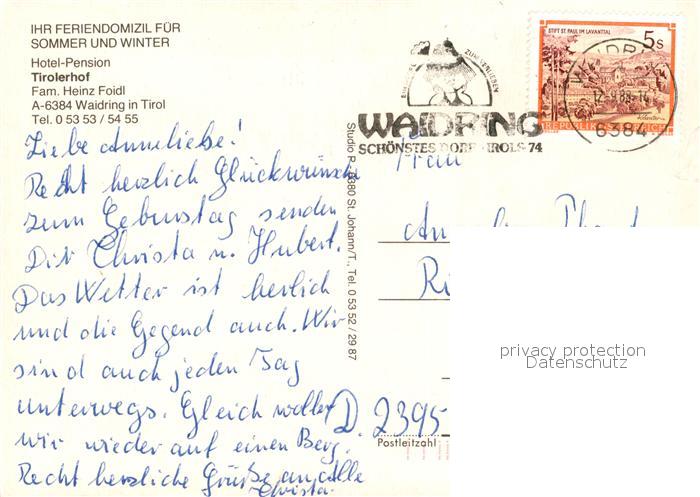 IHR FERIENDOMIZIL FÜR
SOMMER UND WINTER
Hotel-Pension
Tirolerhof
Fam. Heinz Foidl
A-6384 Waidring in Tirol
Tel. 0 53 53 / 54 55
Liebe Anneliebe!
Recht herzlich Glückwünsche
zum Geburtstag senden
Dir Christa u. Hubert.
Das Wetter ist herlich
und die Gegend auch. Wir
sind auch jeden Tag
unterwegs. Gleich wollen
wir wieder auf einen Berg.
Recht herzliche Grüße an alle
Christa.
Studio R., 6380 St. Johann/T., Tel. 0 53 52 / 29 87
WAIDRING
SCHÖNSTES DORF TIROLS 74
STIFT ST. PAUL IM LAVANTTAL
5s
REPUBLIK ÖSTERREICH
WAIDRING
6384
Frau
D. 2395
Postleitzahl
privacy protection
Datenschutz